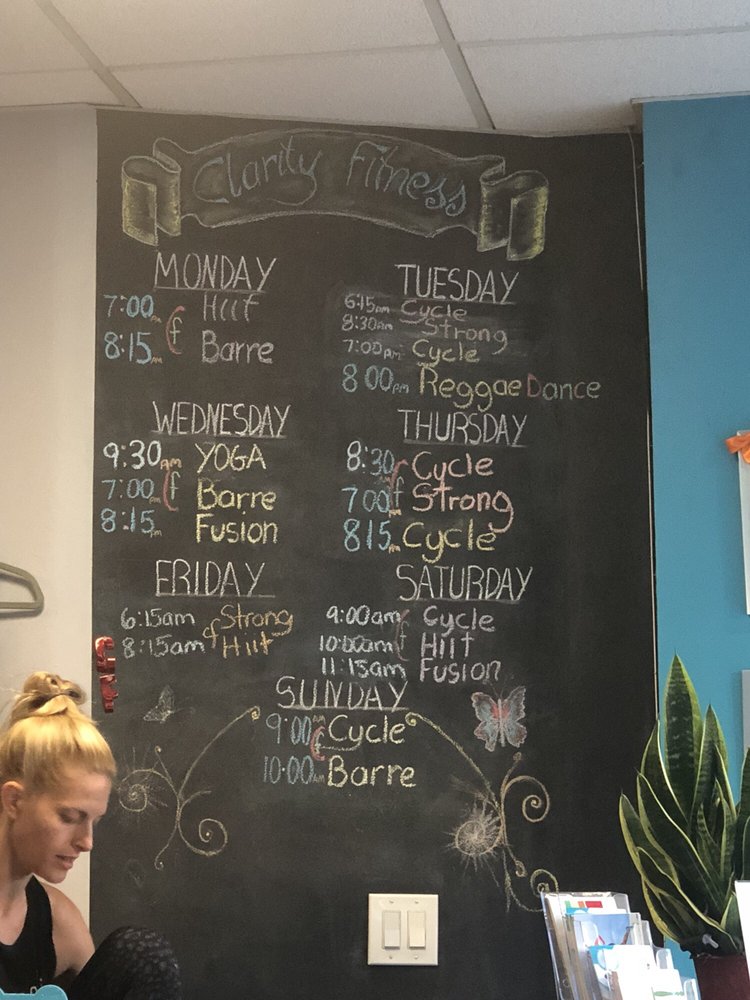 Clarity Fitness
MONDAY
7:00pm Hiit
8:15pm Barre
TUESDAY
6:15am Cycle
8:30am Strong
7:00pm Cycle
8:00pm Reggae Dance
WEDNESDAY
9:30am YOGA
7:00pm Barre
8:15pm Fusion
THURSDAY
8:30 Cycle
7:00 Strong
815 Cycle
FRIDAY
6:15am Strong
8:15am Hiit
SATURDAY
9:00am Cycle
10:00am Hiit
11:15am Fusion
SUNDAY
9:00 Cycle
10:00AM Barre